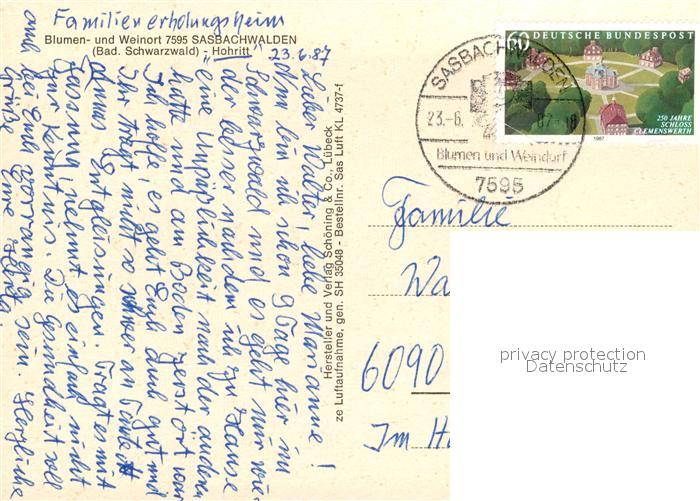 Familienerholungsheim
Blumen- und Weinort 7595 SASBACHWALDEN
(Bad. Schwarzwald) - Hohritt
23.6.87
Lieber Walter, liebe Marianne!
Nun bin ich schon 9 Tage hier im
Schwarzwald und es geht mir wie-
der besser nachdem ich zu Hause
eine Unpäßlichkeit nach der anderen
hatte und am Boden zerstört war.
Ich hoffe, es geht Euch auch gut und
Ihr tragt nicht so schwer an
Entgleisungen. Tragt es mit
Fassung, nehmt es einfach nicht
zur Kenntnis. Die Gesundheit soll
auch bei Euch vorrangig sein. Herzliche
Grüße Eure
Hersteller und Verlag Schöning & Co., Lübeck
ze Luftaufnahme, gen. SH 35048 - Bestellnr. Sas Luft KL 4737-f
60 DEUTSCHE BUNDESPOST
250 JAHRE
SCHLOSS
CLEMENSWERTH
1987
SASBACHWALDEN
23.-6. 87-18
Blumen und Weindorf
7595
Familie
Wa
6090
Im H
privacy protection
Datenschutz